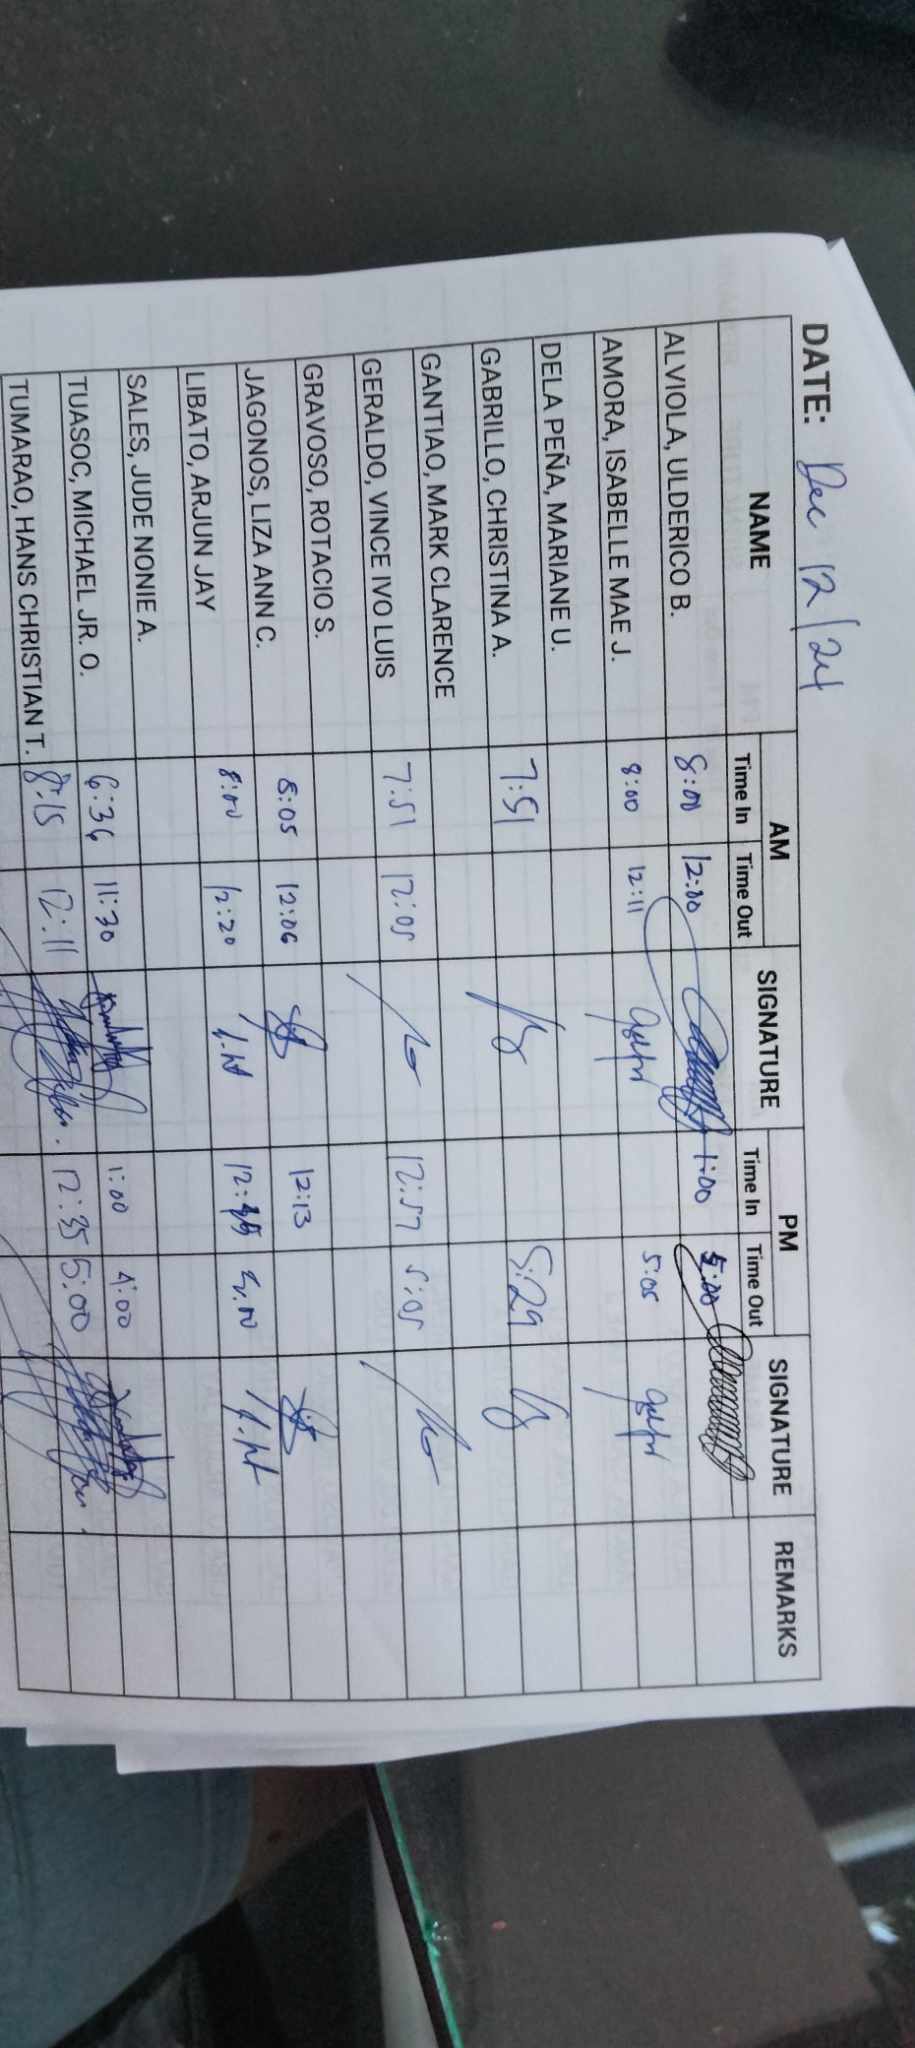 DATE: Dec 12/24
NAME AM SIGNATURE PM SIGNATURE REMARKS
Time In Time Out Time In Time Out
ALVIOLA, ULDERICO B. 8:00 12:00 1:00 5:00
AMORA, ISABELLE MAE J. 8:00 12:11 5:05
DELA PEÑA, MARIANE U.
GABRILLO, CHRISTINA A. 7:51 5:29
GANTIAO, MARK CLARENCE
GERALDO, VINCE IVO LUIS 7:51 12:05 12:57 5:05
GRAVOSO, ROTACIO S.
JAGONOS, LIZA ANN C. 8:05 12:06 12:13
LIBATO, ARJUN JAY 8:00 12:20
SALES, JUDE NONIE A.
TUASOC, MICHAEL JR. O. 6:36 11:30 1:00 4:00
TUMARAO, HANS CHRISTIAN T. 8:15 12:11 12:35 5:00